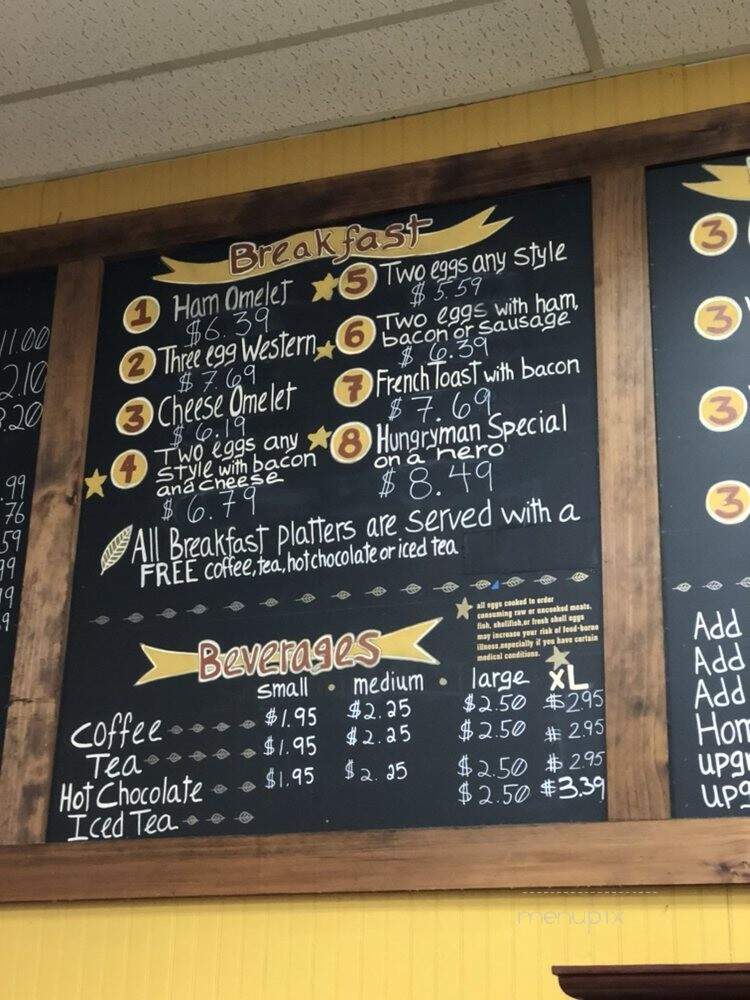 Breakfast
1 Ham Omelet
$6.39
2 Three egg Western
$7.69
3 Cheese Omelet
$6.19
4 Two eggs any
style with bacon
and cheese
$6.79
5 Two eggs any style
$5.59
6 Two eggs with ham,
bacon or sausage
$6.39
7 French Toast with bacon
$7.69
8 Hungryman Special
on a hero
$8.49
All Breakfast platters are served with a
FREE coffee, tea, hot chocolate or iced tea
all eggs cooked to order
consuming raw or uncooked meats,
fish, shellfish, or fresh shell eggs
may increase your risk of food-borne
illness, especially if you have certain
medical conditions.
Beverages
small • medium • large XL
Coffee $1.95 $2.25 $2.50 $2.95
Tea $1.95 $2.25 $2.50 $2.95
Hot Chocolate $1.95 $2.25 $2.50 $2.95
Iced Tea $2.50 $3.39
11.00
2.10
.20
.99
76
59
99
19
9
3
3
3
3
Add
Add
Add
Hom
upgr
upg
menupix